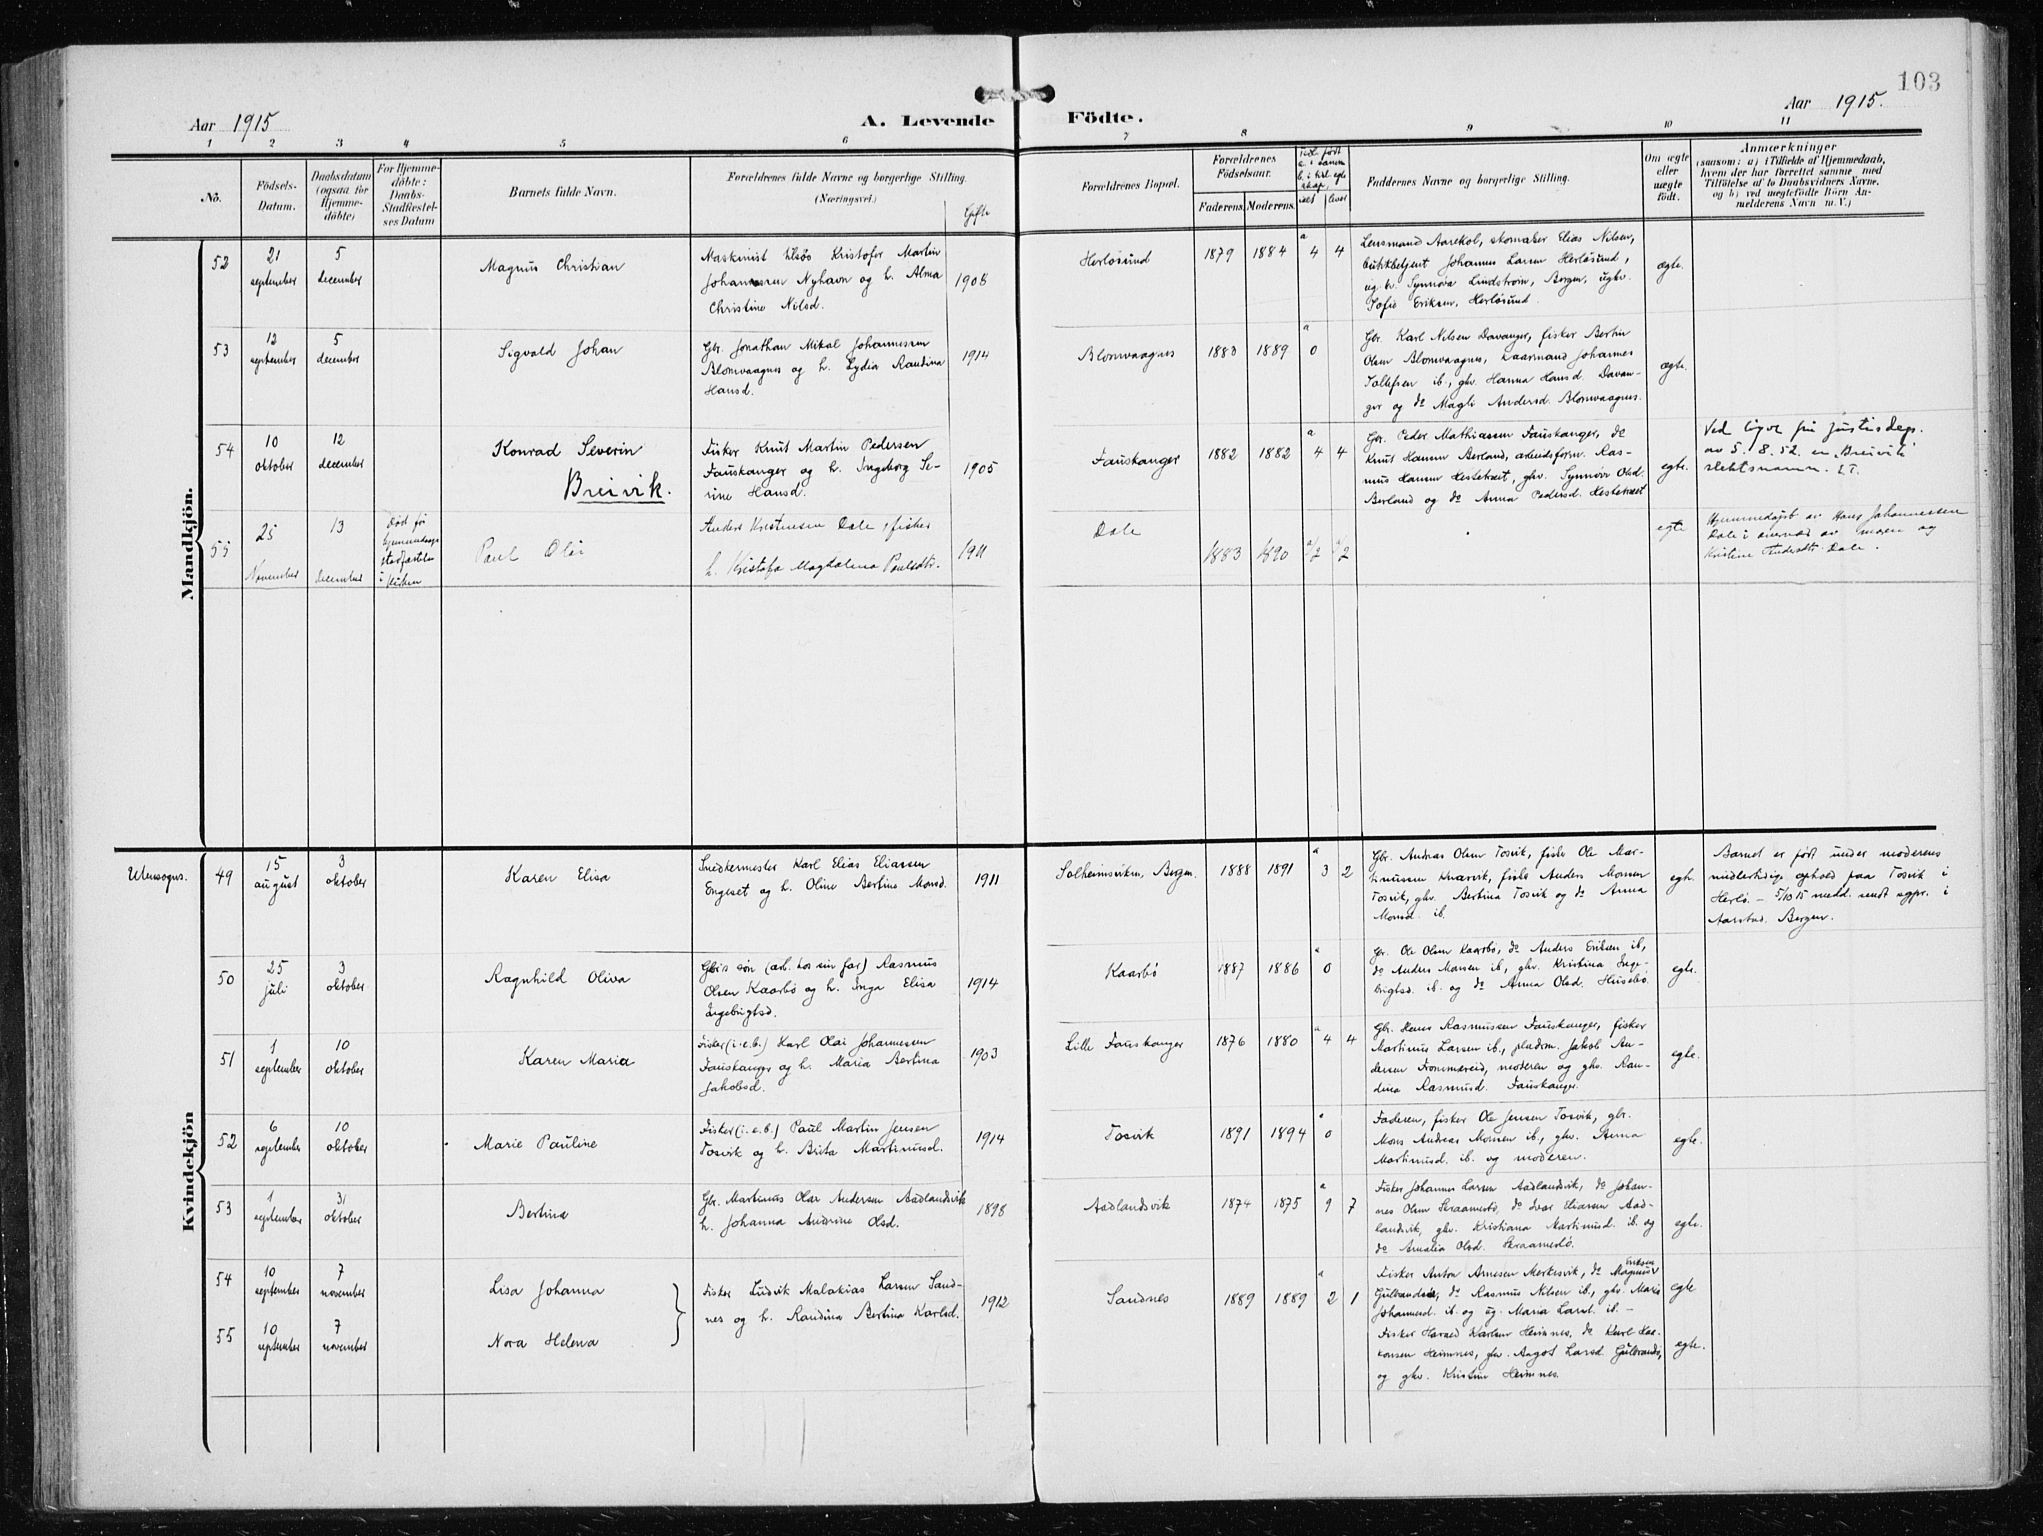 103
Aar 1915
A. Levende Födte.
Aar 1915.
1 2 3 4 5 6 7 8 9 10 11
No.
Födsels-
Datum.
Daabsdatum
(ogsaa for
Hjemme-
döbte)
For Hjemme-
döbte:
Daabs-
Stadfæstel-
ses Datum
Barnets fulde Navn.
Forældrenes fulde Navne og borgerlige Stilling
(Næringsvei.)
Gifte
Forældrenes Bopæl.
Forældrenes
Födselsaar.
Faderens. Moderens.
Faddernes Navne og borgerlige Stilling.
Om ægte
eller
uægte
födt.
Anmærkninger
(saasom: a) i Tilfælde af Hjemmedaab,
hvem der har forrettet samme, med
Tilföielse af to Daabsvidners Navne,
og b) ved uægtefödte Börn An-
melderens Navn m. V.)
Mandkjön.
52
21
september
5
december
Magnus Christian
Maskinist Elsøs Kristofer Martin
Johannessen Nyhavn og h. Alma
Christine Nilsd.
1908
Herløsund
1879 1884 a 4 4
Lensmand Aarekol, skomaker Elias Nilsen,
butikbetjent Johannes Larsen Herløsund,
ug. kv. Synnøva Lindstrøm, Bergen, ugkv.
Sofie Eriksen, Herløsund.
ægte.
53
12
september
5
december
Sigvald Johan
Gbr. Jonathan Mikal Johannessen
Blomvaagnes og h. Lydia Randina
Hansd.
1914
Blomvaagnes
1883 1889 a 0
Gbr. Karl Nilsen Davanger, fisker Bertin
Olsen Blomvaagnes, baarmand Johannes
Tollefsen ib., gkv. Hanna Hansd. Davan-
ger og do Magli Andersd. Blomvaagnes.
ægte.
54
10
oktober
12
december
Konrad Severin
Breivik.
Fisker Knut Martin Pedersen
Fauskanger og h. Ingeborg Se-
rine Hansd.
1905
Fauskanger
1882 1882 a 4 4
Gbr. Peder Mathiassen Fauskanger, do
Knut Hansen Berland, arbeidsform. Ras-
mus Hansen Hestetræet, gkv. Synnøva Olsd.
Berland og do Anna Pedersd. Hestetræet
egte.
Ved bigve fra justisdep.
av 5.8.52. er „Breivik“
slektsnamn. L.T.
55
25
November
13
december
Død før
Hjemmedaaps
stadfæstelsen
i kirken
Paul Olai
Anders Kristensen Dale, fisker
h. Kristofa Magdalena Paulsdtr.
1911
Dale
1883 1890 a/2 a/2
egte
Hjemmedøpt av Hans Johannessen
Dale i nærvær av moren og
Kristine Andersdt. Dale.
Kvindekjön
Utensogns.
49
15
august
3
oktober
Karen Elisa
Snedkermester Karl Elias Eliassen
Engeset og h. Oline Bertine Monsd.
1911
Solheimsviken, Bergen.
1888 1891 a 3 2
Gbr. Andreas Olsen Tosvik, fisker Ole Mar-
kussen Kvarvik, fisker Anders Monsen
Tosvik, gkv. Bertina Tosvik og do Anna
Monsd. ib.
egte.
Barnet er født under moderens
midlertidige ophold paa Tosvik i
Herlø. – 5/10 15 medd. sendt sgpr. i
Aarstad, Bergen.
50
25
juli
3
oktober
Ragnhild Oliva
Gbr's søn (arb. hos sin far) Rasmus
Olsen Kaarbø og h. Inga Elisa
Ingebrigtsd.
1914
Kaarbø
1887 1886 a 0
Gbr. Ole Olsen Kaarbø, do Anders Eriksen ib,
do Anders Monsen ib., gkv. Kristina Inge-
brigtsd. ib. og do Anna Olsd. Husebø.
egte.
51
1
september
10
oktober
Karen Maria
Fisker (i.e.b.) Karl Olai Johannesen
Fauskanger og h. Maria Bertina
Jakobsd.
1903
Lille Fauskanger
1876 1880 a 4 4
Gbr. Hans Rasmussen Fauskanger, fisker
Martinus Larsen ib., pladsm. Jakob An-
dersen Frommereid, moderen og gkv. Ran-
dina Rasmusd. Fauskanger.
egte.
52
6
september
10
oktober
Marie Pauline
Fisker (i.e.b.) Paul Martin Jensen
Tosvik og h. Brita Martinusd.
1914
Tosvik
1891 1894 a 0
Faderen, fisker Ole Jensen Tosvik, gbr.
Mons Andreas Monsen ib., gkv. Anna
Martinusd. ib. og moderen.
egte.
53
1
september
31
oktober
Bertina
Gbr. Martinus Olai Andersen Aadlandsvik
h. Johanna Andrine Olsd.
1898
Aadlandsvik
1874 1875 a 9 7
Fisker Johannes Larsen Aadlandsvik, do Johan-
nes Olsen Skraamestø, do Ivar Eliassen Aad-
landsvik, gkv. Kristiana Martinusd. ib. og
do Amalia Olsd. Skraamestø.
egte.
54
10
september
7
november
Lisa Johanna
Fisker Ludvik Malakias Larsen Sand-
nes og h. Randina Bertina Karlsd.
1912
Sandnes
1889 1889 a 2 1
Fisker Anton Arnesen Merkesvik, do Magnus Eriksen
Gulbrandsø, do Rasmus Nilsen ib., gkv. Maria
Johannesd. ib. og ug. Maria Larsd. ib. –
egte
55
10
september
7
november
Nora Helena
Fisker Harald Karlsen Heimnes, do Karl Haa-
konsen Heimnes, gkv. Angot Larsd. Gulbrandsø,
og gkv. Kristine Heimnes.
egte.